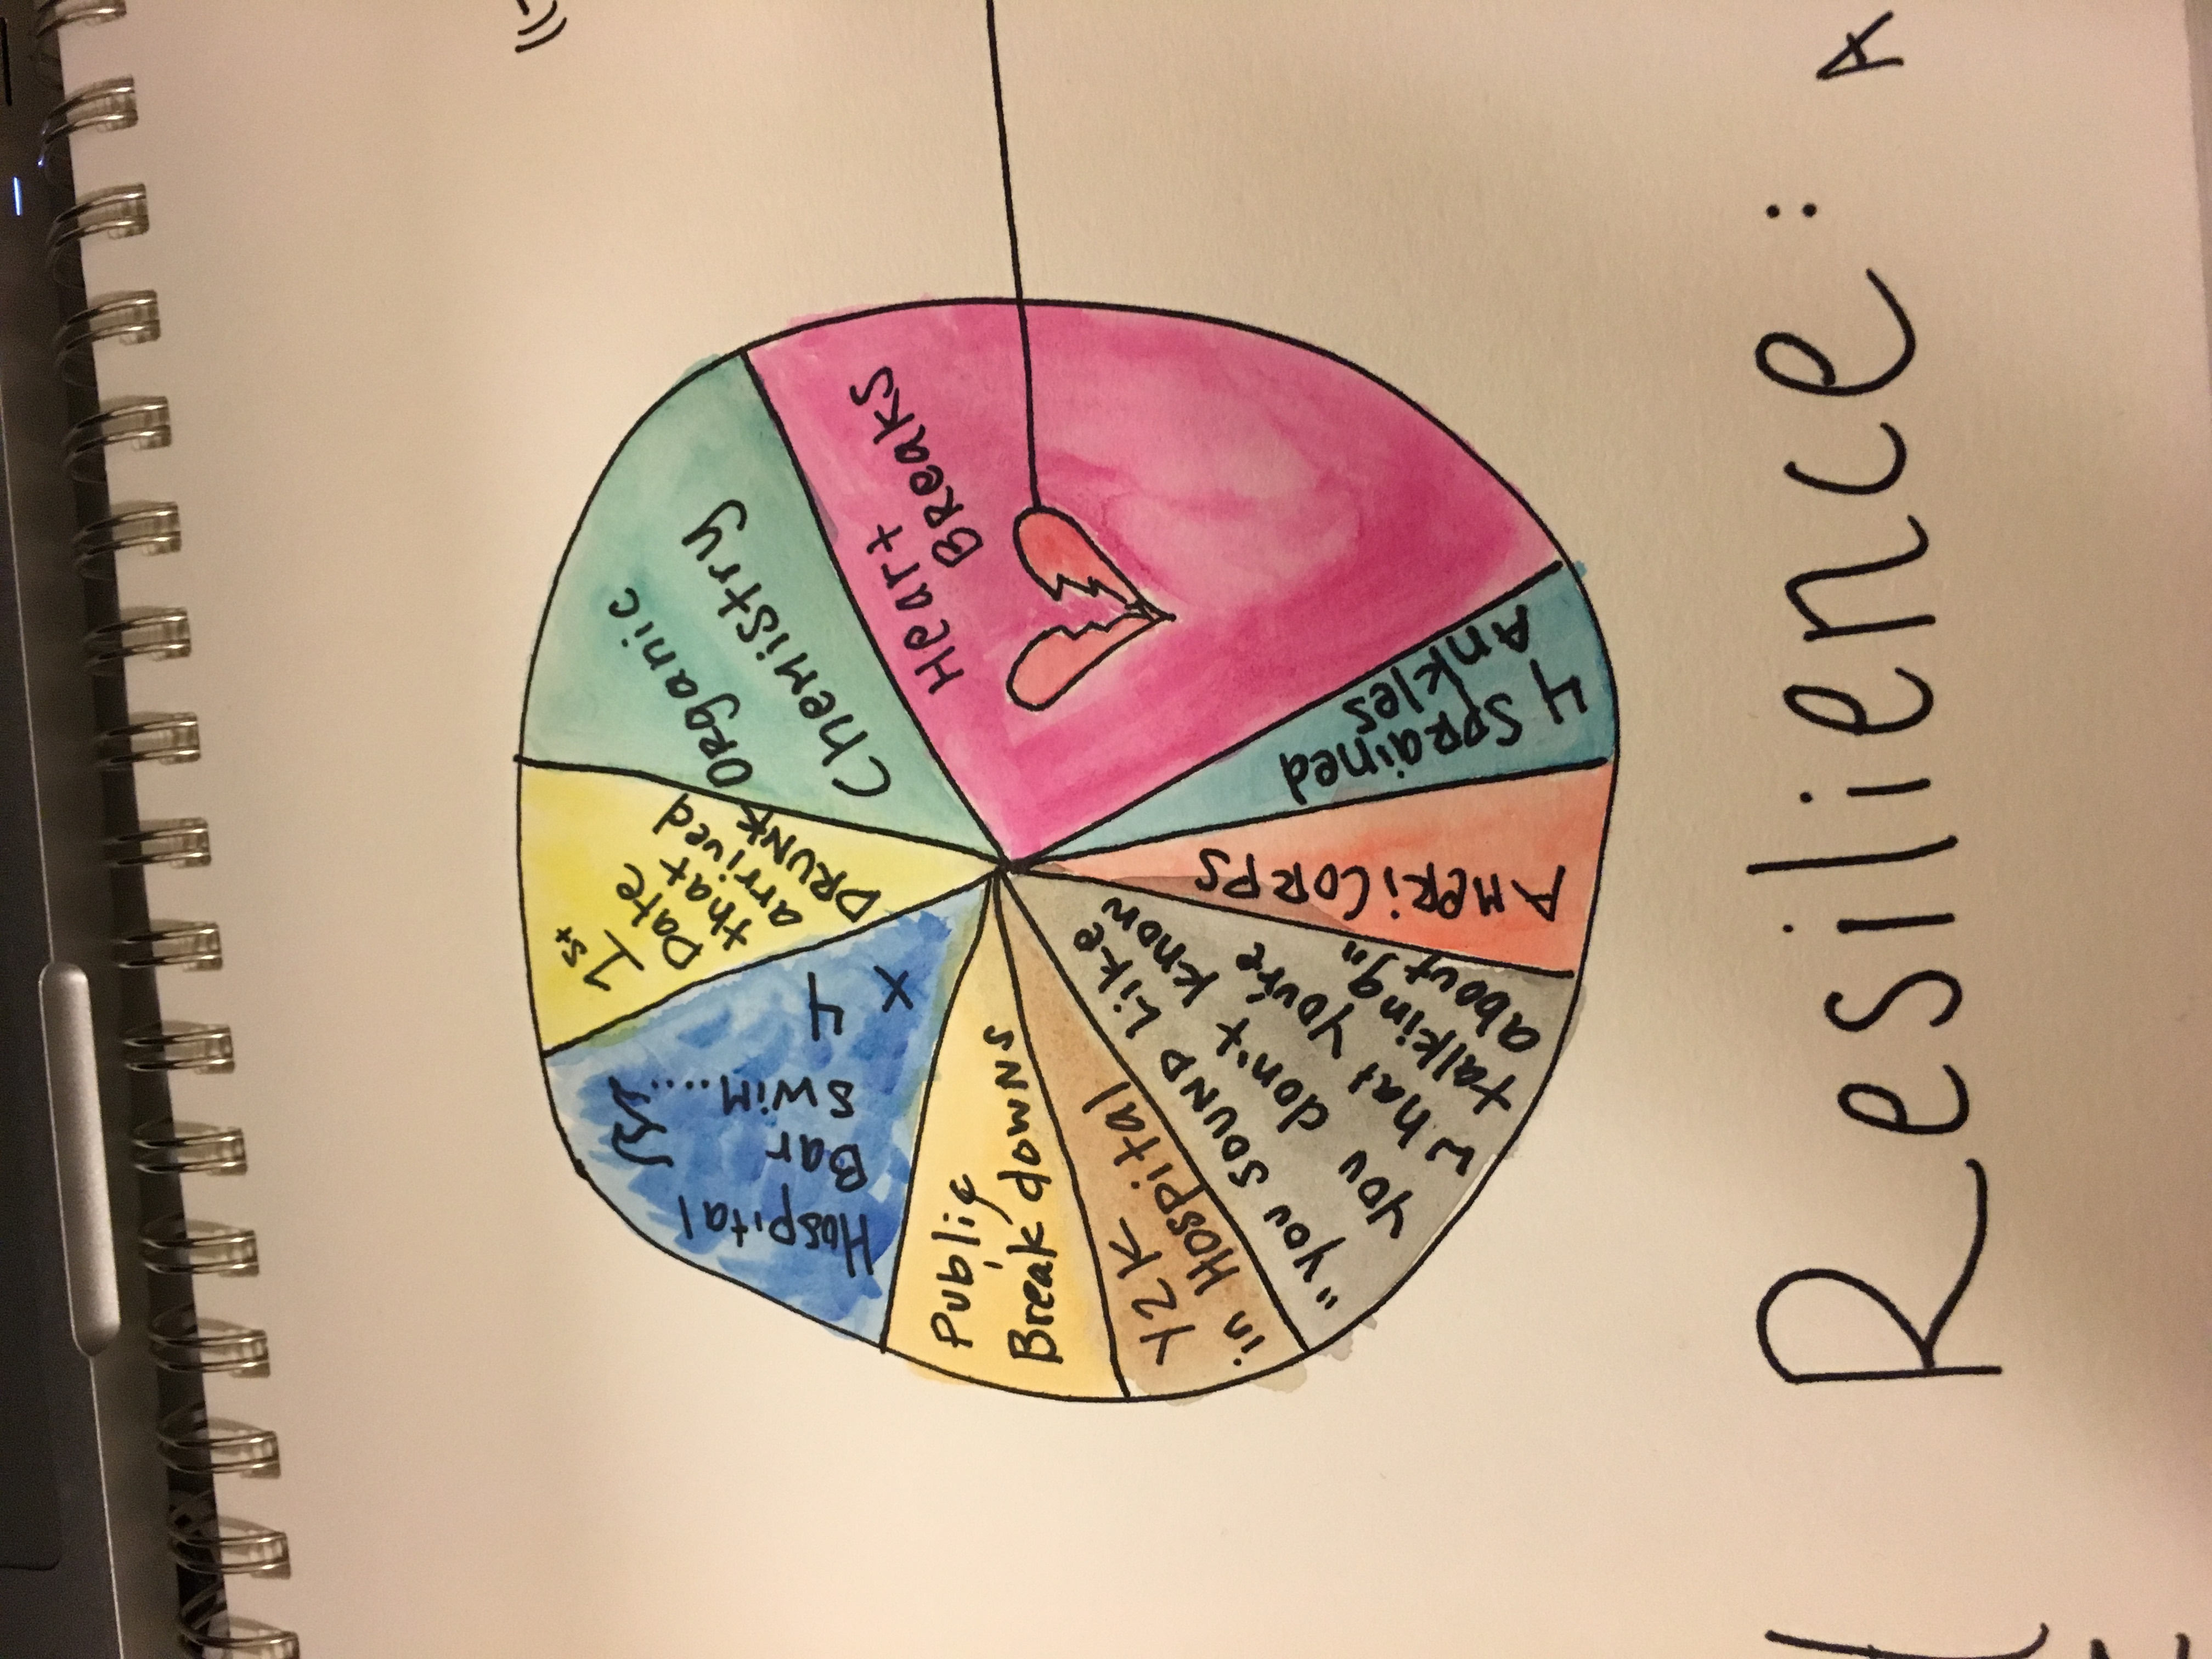 Organic
Chemistry
Heart
Breaks
4 Sprained
Ankles
AmeriCorps
"You SOUND Like
you don't know
what you're
talking
about"
Y2K
in Hospital
Public
Break downs
Hospital
Bar
Swim....
x 4
1st
Date
that
arrived
DRUNK
Resilience: A